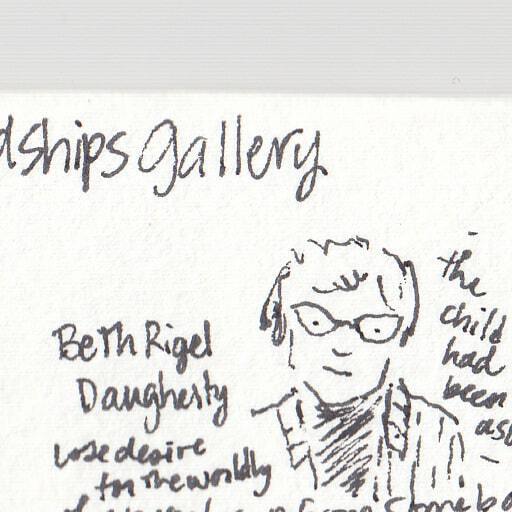 dships gallery
Beth Rigel
Daugherty
lose desire
for the worldly
the
child
had
been
as